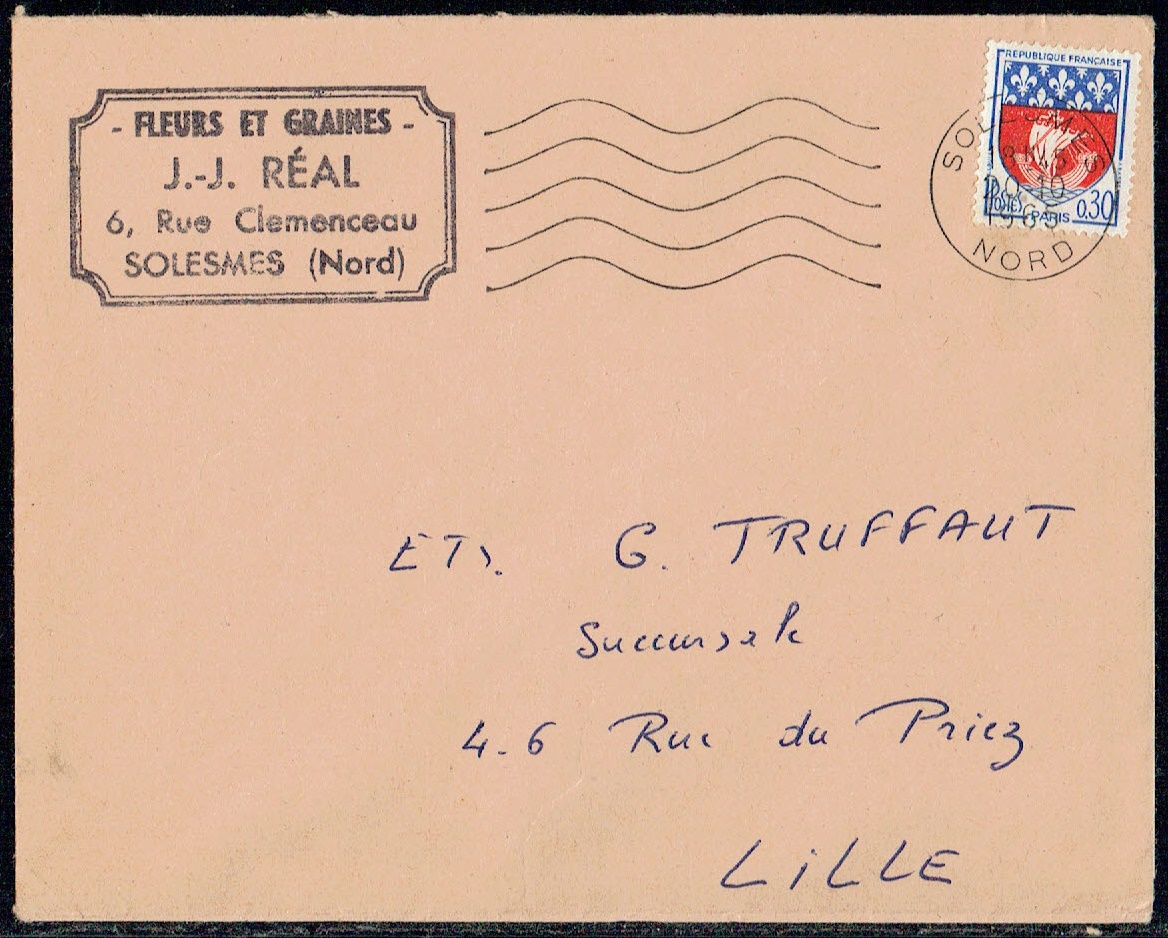 - FLEURS ET GRAINES -
J.-J. RÉAL
6, Rue Clemenceau
SOLESMES (Nord)
RÉPUBLIQUE FRANÇAISE
POSTES PARIS 0,30
SOLESMES
10
NORD
ETS. G. TRUFFAUT
Succursale
4-6 Rue du Priez
LiLLE